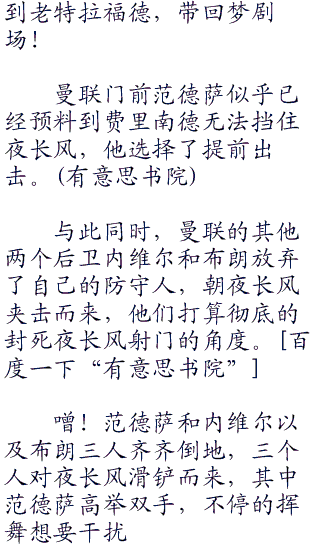 到老特拉福德，带回梦剧
场！
曼联门前范德萨似乎已
经预料到费里南德无法挡住
夜长风，他选择了提前出
击。(有意思书院)
与此同时，曼联的其他
两个后卫内维尔和布朗放弃
了自己的防守人，朝夜长风
夹击而来，他们打算彻底的
封死夜长风射门的角度。[百
度一下“有意思书院”]
噌！范德萨和内维尔以
及布朗三人齐齐倒地，三个
人对夜长风滑铲而来，其中
范德萨高举双手，不停的挥
舞想要干扰